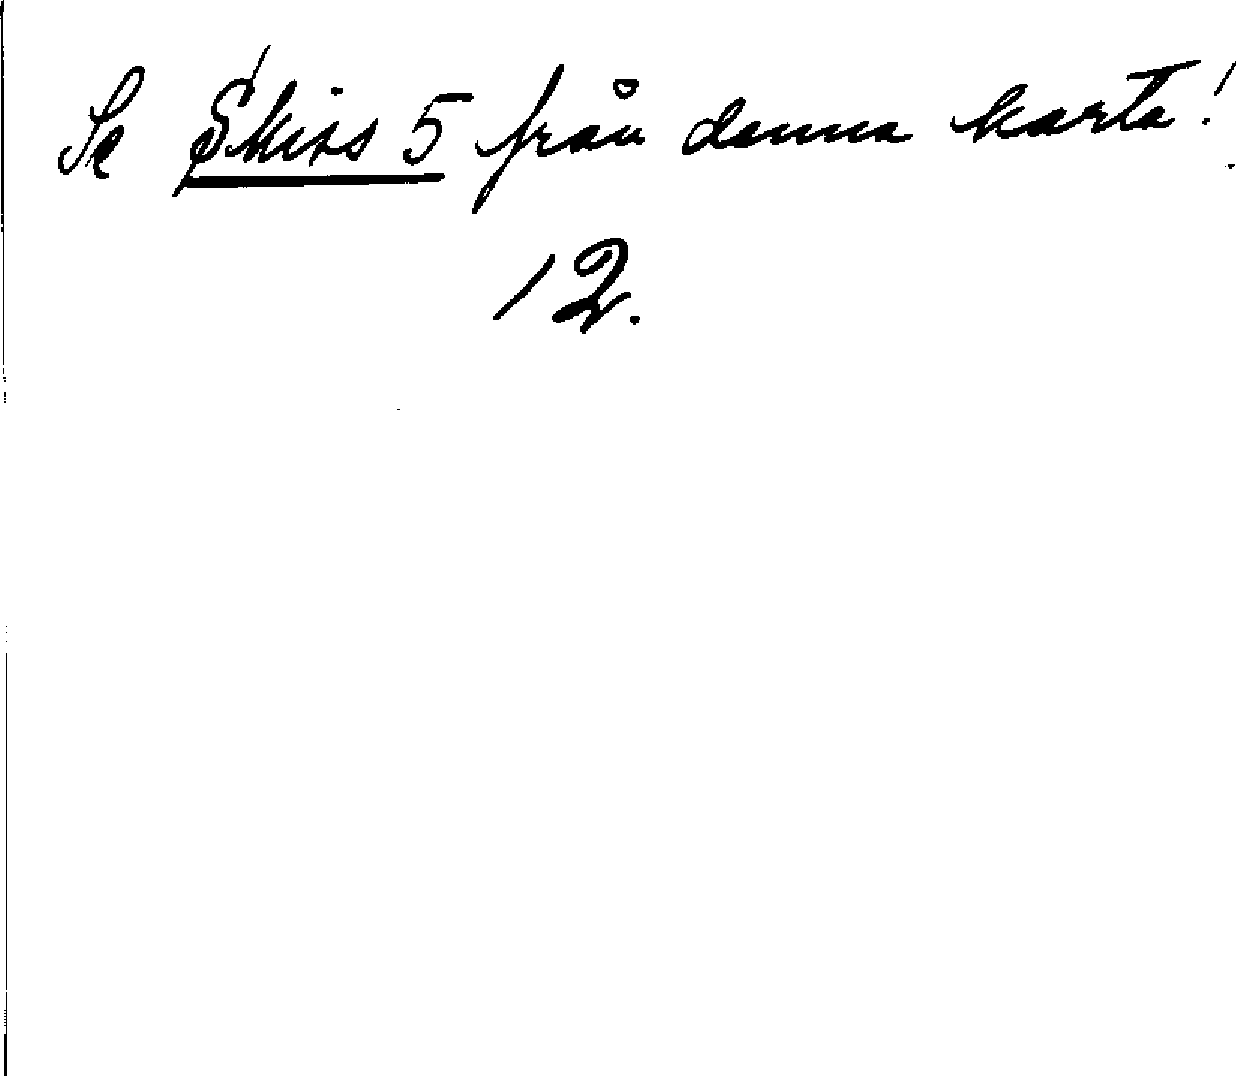 Se Skiss 5 från denna karta!
12.